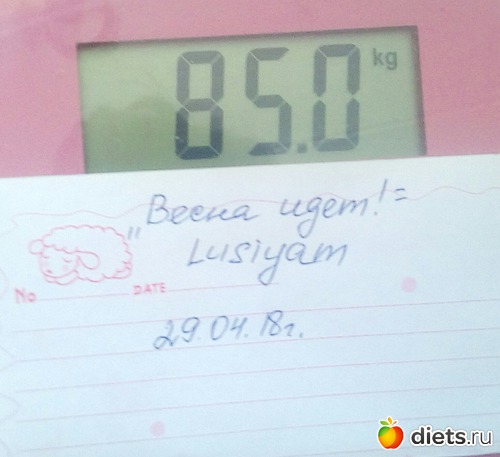 85.0 kg
„Весна идет!"
Lusiyam
No DATE
29.04.18г.
diets.ru